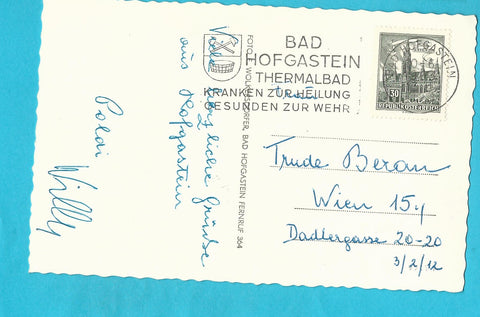 BAD
HOFGASTEIN
THERMALBAD
KRANKEN ZUR HEILUNG
GESUNDEN ZUR WEHR
HOFGASTEIN
50
REPUBLIK ÖSTERREICH
Viele herzliche Grüsse
aus Hofgastein
Poldi
Willy
BAD HOFGASTEIN FERNRUF 364
Trude Beran
Wien 15
Dadlergasse 20-20
3/2/12